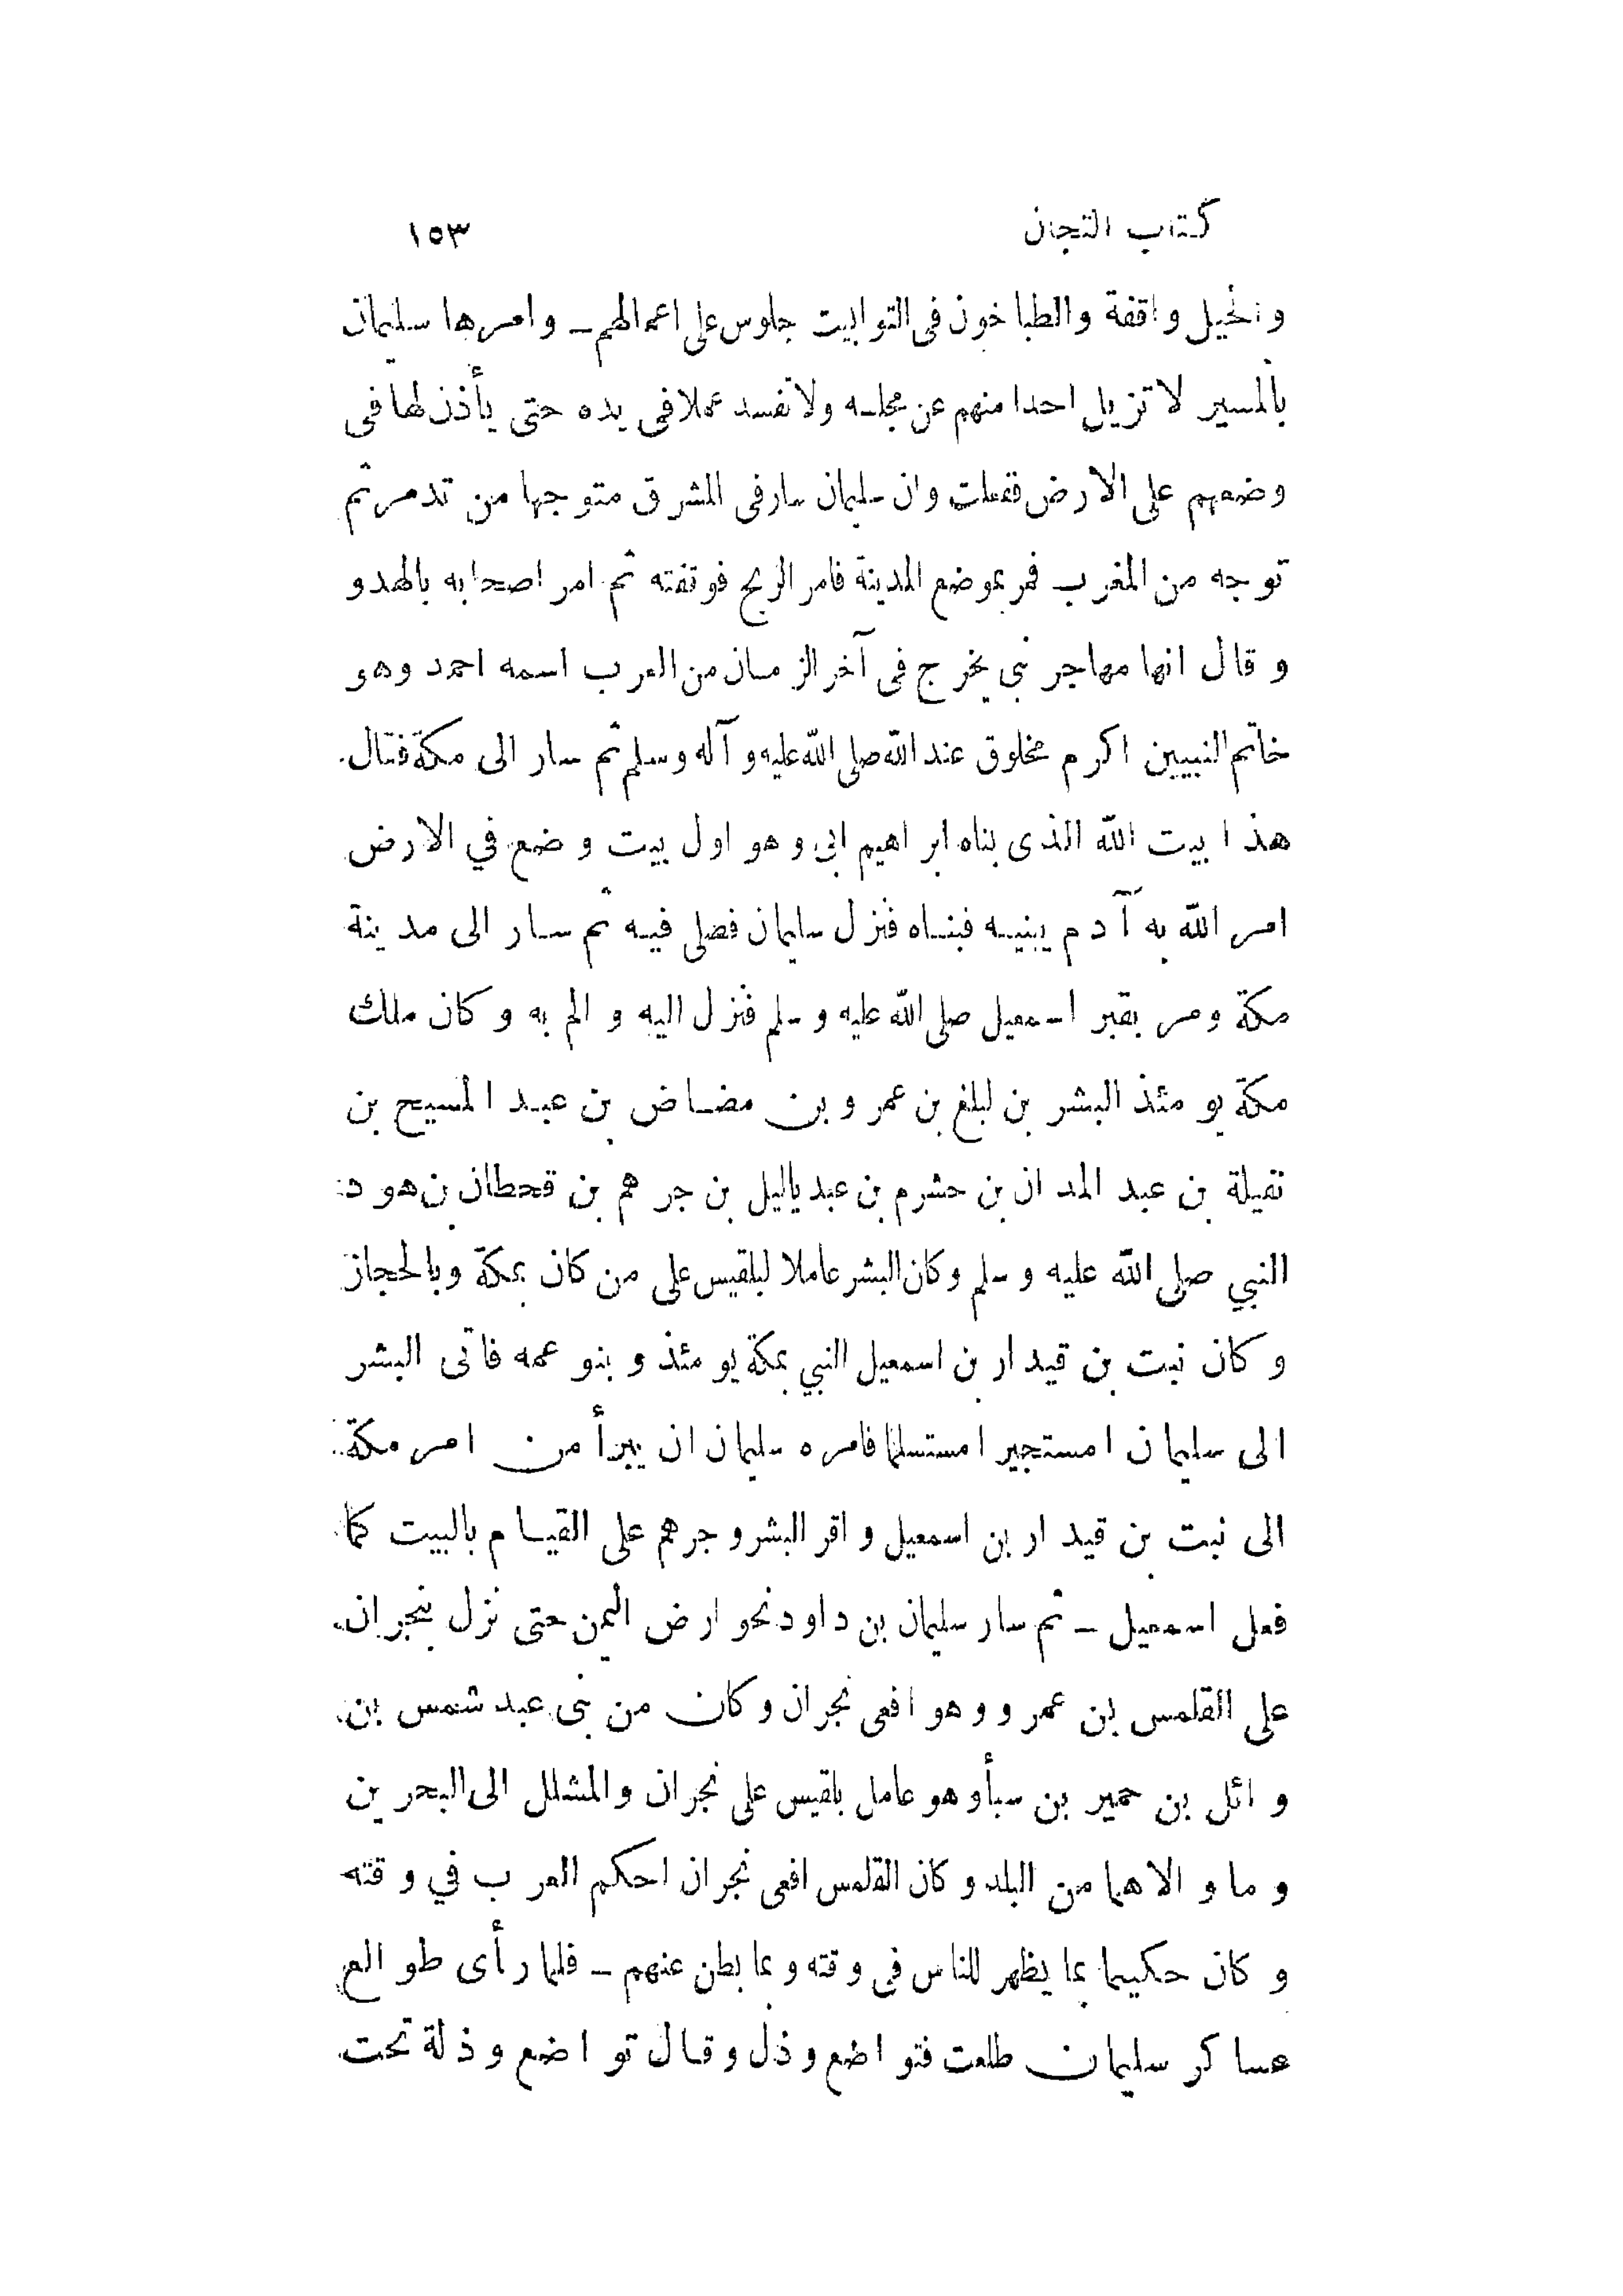 كتاب التيجان ١٥٣
والخيل واقفة والطباخون فى التوابيت جلوس على اعمالهم ـ وامرها سليمان
بالمسير لا تزيل احدا منهم عن مجلسه ولا تفسد عملا فى يده حتى يأذن لها فى
وضعهم على الارض ففعلت وان سليمان سار فى المشرق متوجها من تدمر ثم
توجه من المغرب فمر بموضع المدينة فامر الريح فوقفته ثم امر اصحابه بالهدو
وقال انها مهاجر نبى يخرج فى آخر الزمان من العرب اسمه احمد وهو
خاتم النبيين اكرم مخلوق عند الله صلى الله عليه و آله وسلم ثم سار الى مكة فقال
هذا بيت الله الذى بناه ابراهيم ابى وهو اول بيت وضع في الارض
امر الله به آدم يبنيه فبناه فنزل سليمان فصلى فيه ثم سار الى مدينة
مكة ومر بقبر اسمعيل صلى الله عليه وسلم فنزل اليه و الم به وكان ملك
مكة يومئذ البشر بن لبلغ بن عمرو بن مضاض بن عبد المسيح بن
نفيلة بن عبد المدان بن حشرم بن عبد ياليل بن جرهم بن قحطان بن هود
النبي صلى الله عليه وسلم وكان البشر عاملا لبلقيس على من كان بمكة وبالحجاز
وكان نبت بن قيدار بن اسمعيل النبي بمكة يومئذ وبنو عمه فاتى البشر
الى سليمان مستجيرا مستسلما فامره سليمان ان يبرأ من امر مكة
الى نبت بن قيدار بن اسمعيل واقر البشر وجرهم على القيام بالبيت كما
فعل اسمعيل ـ ثم سار سليمان بن داود نحو ارض اليمن حتى نزل بنجران
على القلمس بن عمرو وهو افعى نجران وكان من بنى عبد شمس بن
وائل بن حمير بن سبأ وهو عامل بلقيس على نجران والمشلل الى البحرين
وما والاهما من البلد وكان القلمس افعى نجران احكم العرب في وقته
وكان حكيما بما يظهر للناس فى وقته وبما بطن عنهم ـ فلما رأى طوالع
عساكر سليمان طلعت فتواضع وذل وقال تواضع وذلة تحت